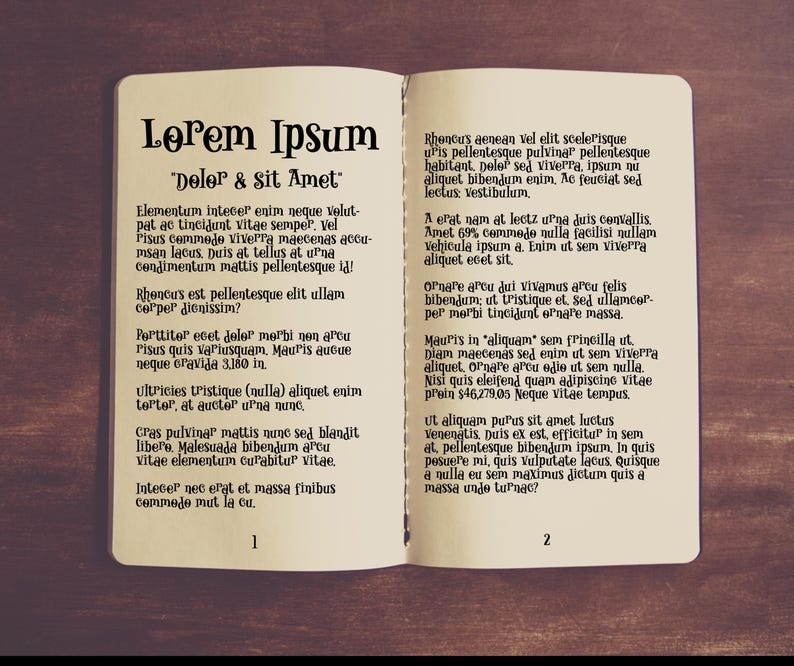 Lorem Ipsum
"Dolor & Sit Amet"
Elementum integer enim neque volut-
pat ac tincidunt vitae semper. Vel
risus commodo viverra maecenas accu-
msan lacus. Duis at tellus at urna
condimentum mattis pellentesque id!
Rhoncus est pellentesque elit ullam
corper dignissim?
Porttitor eget dolor morbi non arcu
risus quis variusquam. Mauris augue
neque gravida 3,180 in.
Ultricies tristique (nulla) aliquet enim
tortor, at auctor urna nunc.
Cras pulvinar mattis nunc sed blandit
libero. Malesuada bibendum arcu
vitae elementum curabitur vitae.
Integer nec erat et massa finibus
commodo mut la cu.
1
Rhoncus aenean vel elit scelerisque
uris pellentesque pulvinar pellentesque
habitant. Dolor sed viverra, ipsum nu
aliquet bibendum enim. Ac feugiat sed
lectus: vestibulum.
A erat nam at lectz urna duis convallis.
Amet 69% commodo nulla facilisi nullam
vehicula ipsum a. Enim ut sem viverra
aliquet eget sit.
Ornare arcu dui vivamus arcu felis
bibendum; ut tristique et. Sed ullamcor-
per morbi tincidunt ornare massa.
Mauris in *aliquam* sem fringilla ut.
Diam maecenas sed enim ut sem viverra
aliquet. Ornare arcu odio ut sem nulla.
Nisi quis eleifend quam adipiscing vitae
proin $46,279.05 Neque vitae tempus.
Ut aliquam purus sit amet luctus
venenatis. Duis ex est, efficitur in sem
at, pellentesque bibendum ipsum. In quis
posuere mi, quis vulputate lacus. Quisque
a nulla eu sem maximus dictum quis a
massa undo turnac?
2